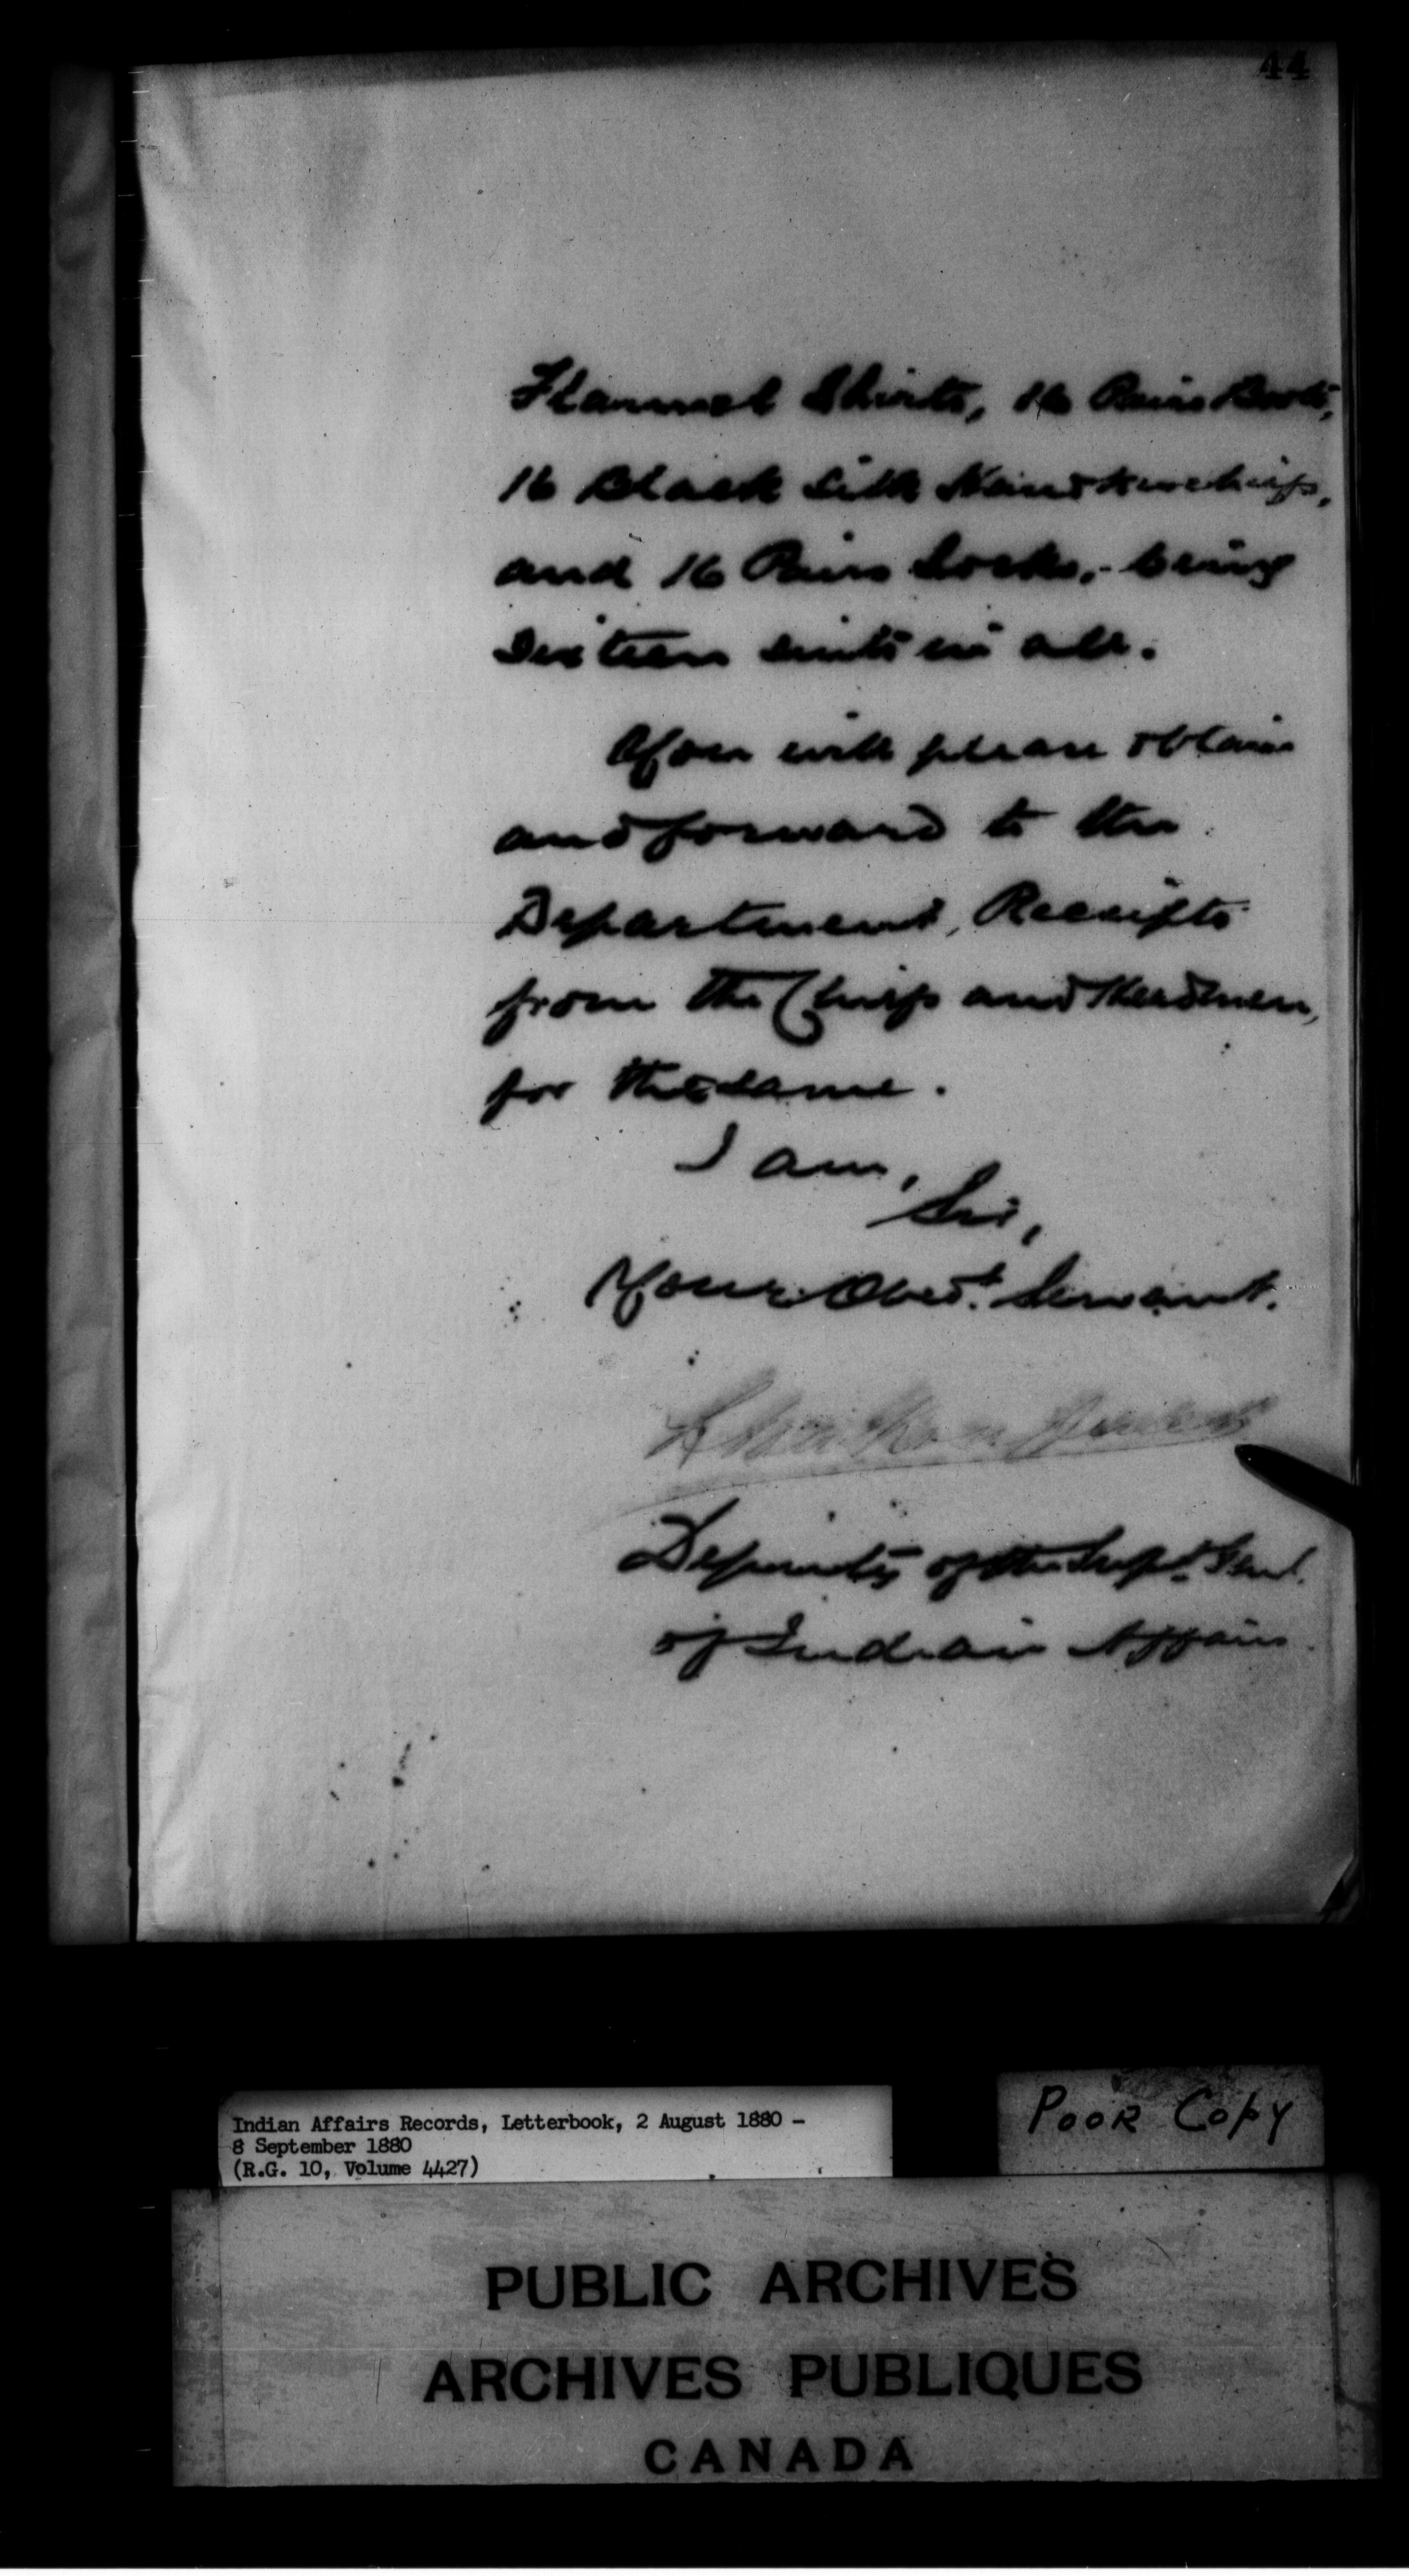 44
Flannel Shirts, 16 Pairs Boots,
16 Black Silk Handkerchiefs,
and 16 Pairs Socks,- being
Sixteen suits in all.
You will please obtain
and forward to the
Department, Receipts
from the Chiefs and Headmen,
for the same.
I am,
Sir,
Your Obedt. Servant.
Deputy of the Supt. Genl.
of Indian Affairs.
Indian Affairs Records, Letterbook, 2 August 1880 -
8 September 1880
(R.G. 10, Volume 4427)
POOR COPY
PUBLIC ARCHIVES
ARCHIVES PUBLIQUES
CANADA